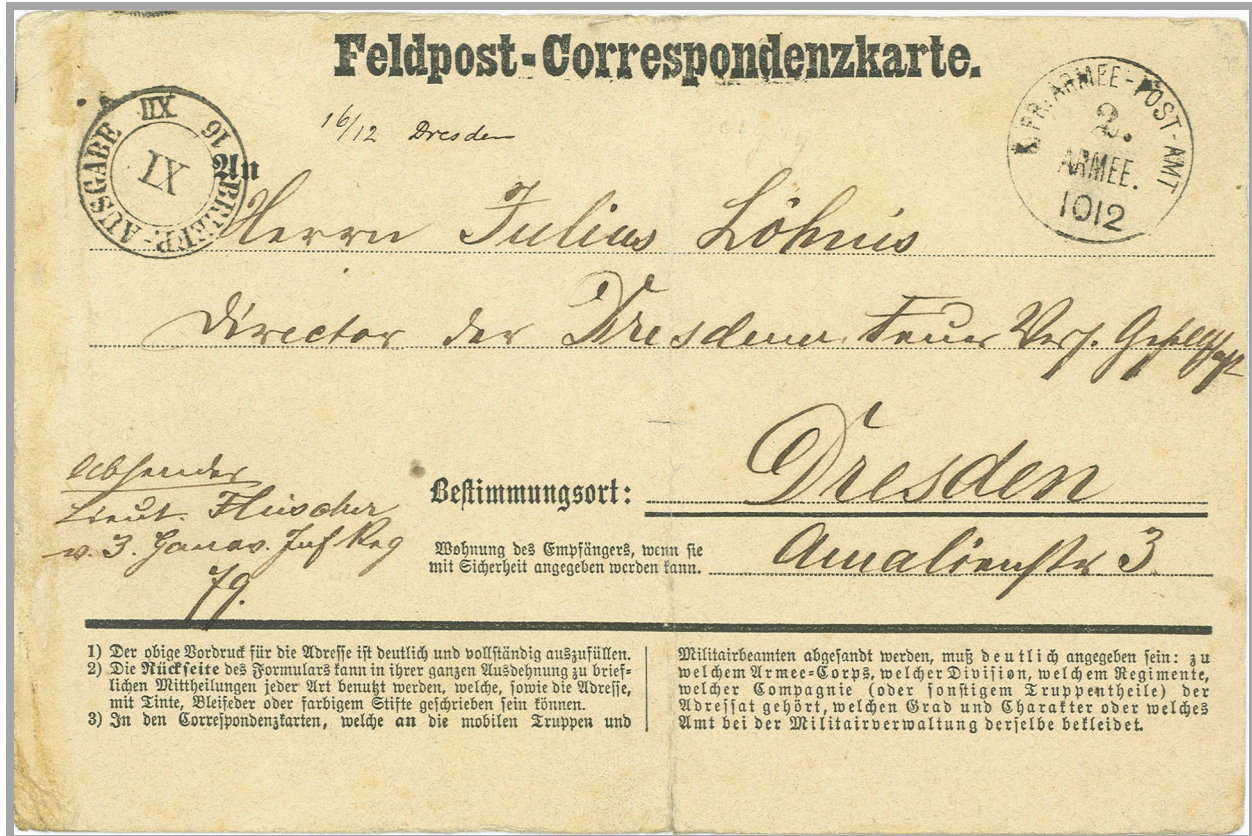 Feldpost-Correspondenzkarte.
16/12 Dresden
BRIEF-AUSGABE
16 XII
IX
K. PR. ARMEE-POST-AMT
2.
ARMEE.
1012
An
Herrn Julius Löhnis
Director der Dresdener Feuer Vers. Gesellschaft
Bestimmungsort: Dresden
Wohnung des Empfängers, wenn sie
mit Sicherheit angegeben werden kann. Amalienstr 3
Absender
Lieut. Fleischer
v. 3. Hanov. Inf Reg
79.
1) Der obige Vordruck für die Adresse ist deutlich und vollständig auszufüllen.
2) Die Rückseite des Formulars kann in ihrer ganzen Ausdehnung zu brief-
lichen Mittheilungen jeder Art benutzt werden, welche, sowie die Adresse,
mit Tinte, Bleifeder oder farbigem Stifte geschrieben sein können.
3) In den Correspondenzkarten, welche an die mobilen Truppen und
Militairbeamten abgesandt werden, muß deutlich angegeben sein: zu
welchem Armee-Corps, welcher Division, welchem Regimente,
welcher Compagnie (oder sonstigem Truppentheile) der
Adressat gehört, welchen Grad und Charakter oder welches
Amt bei der Militairverwaltung derselbe bekleidet.